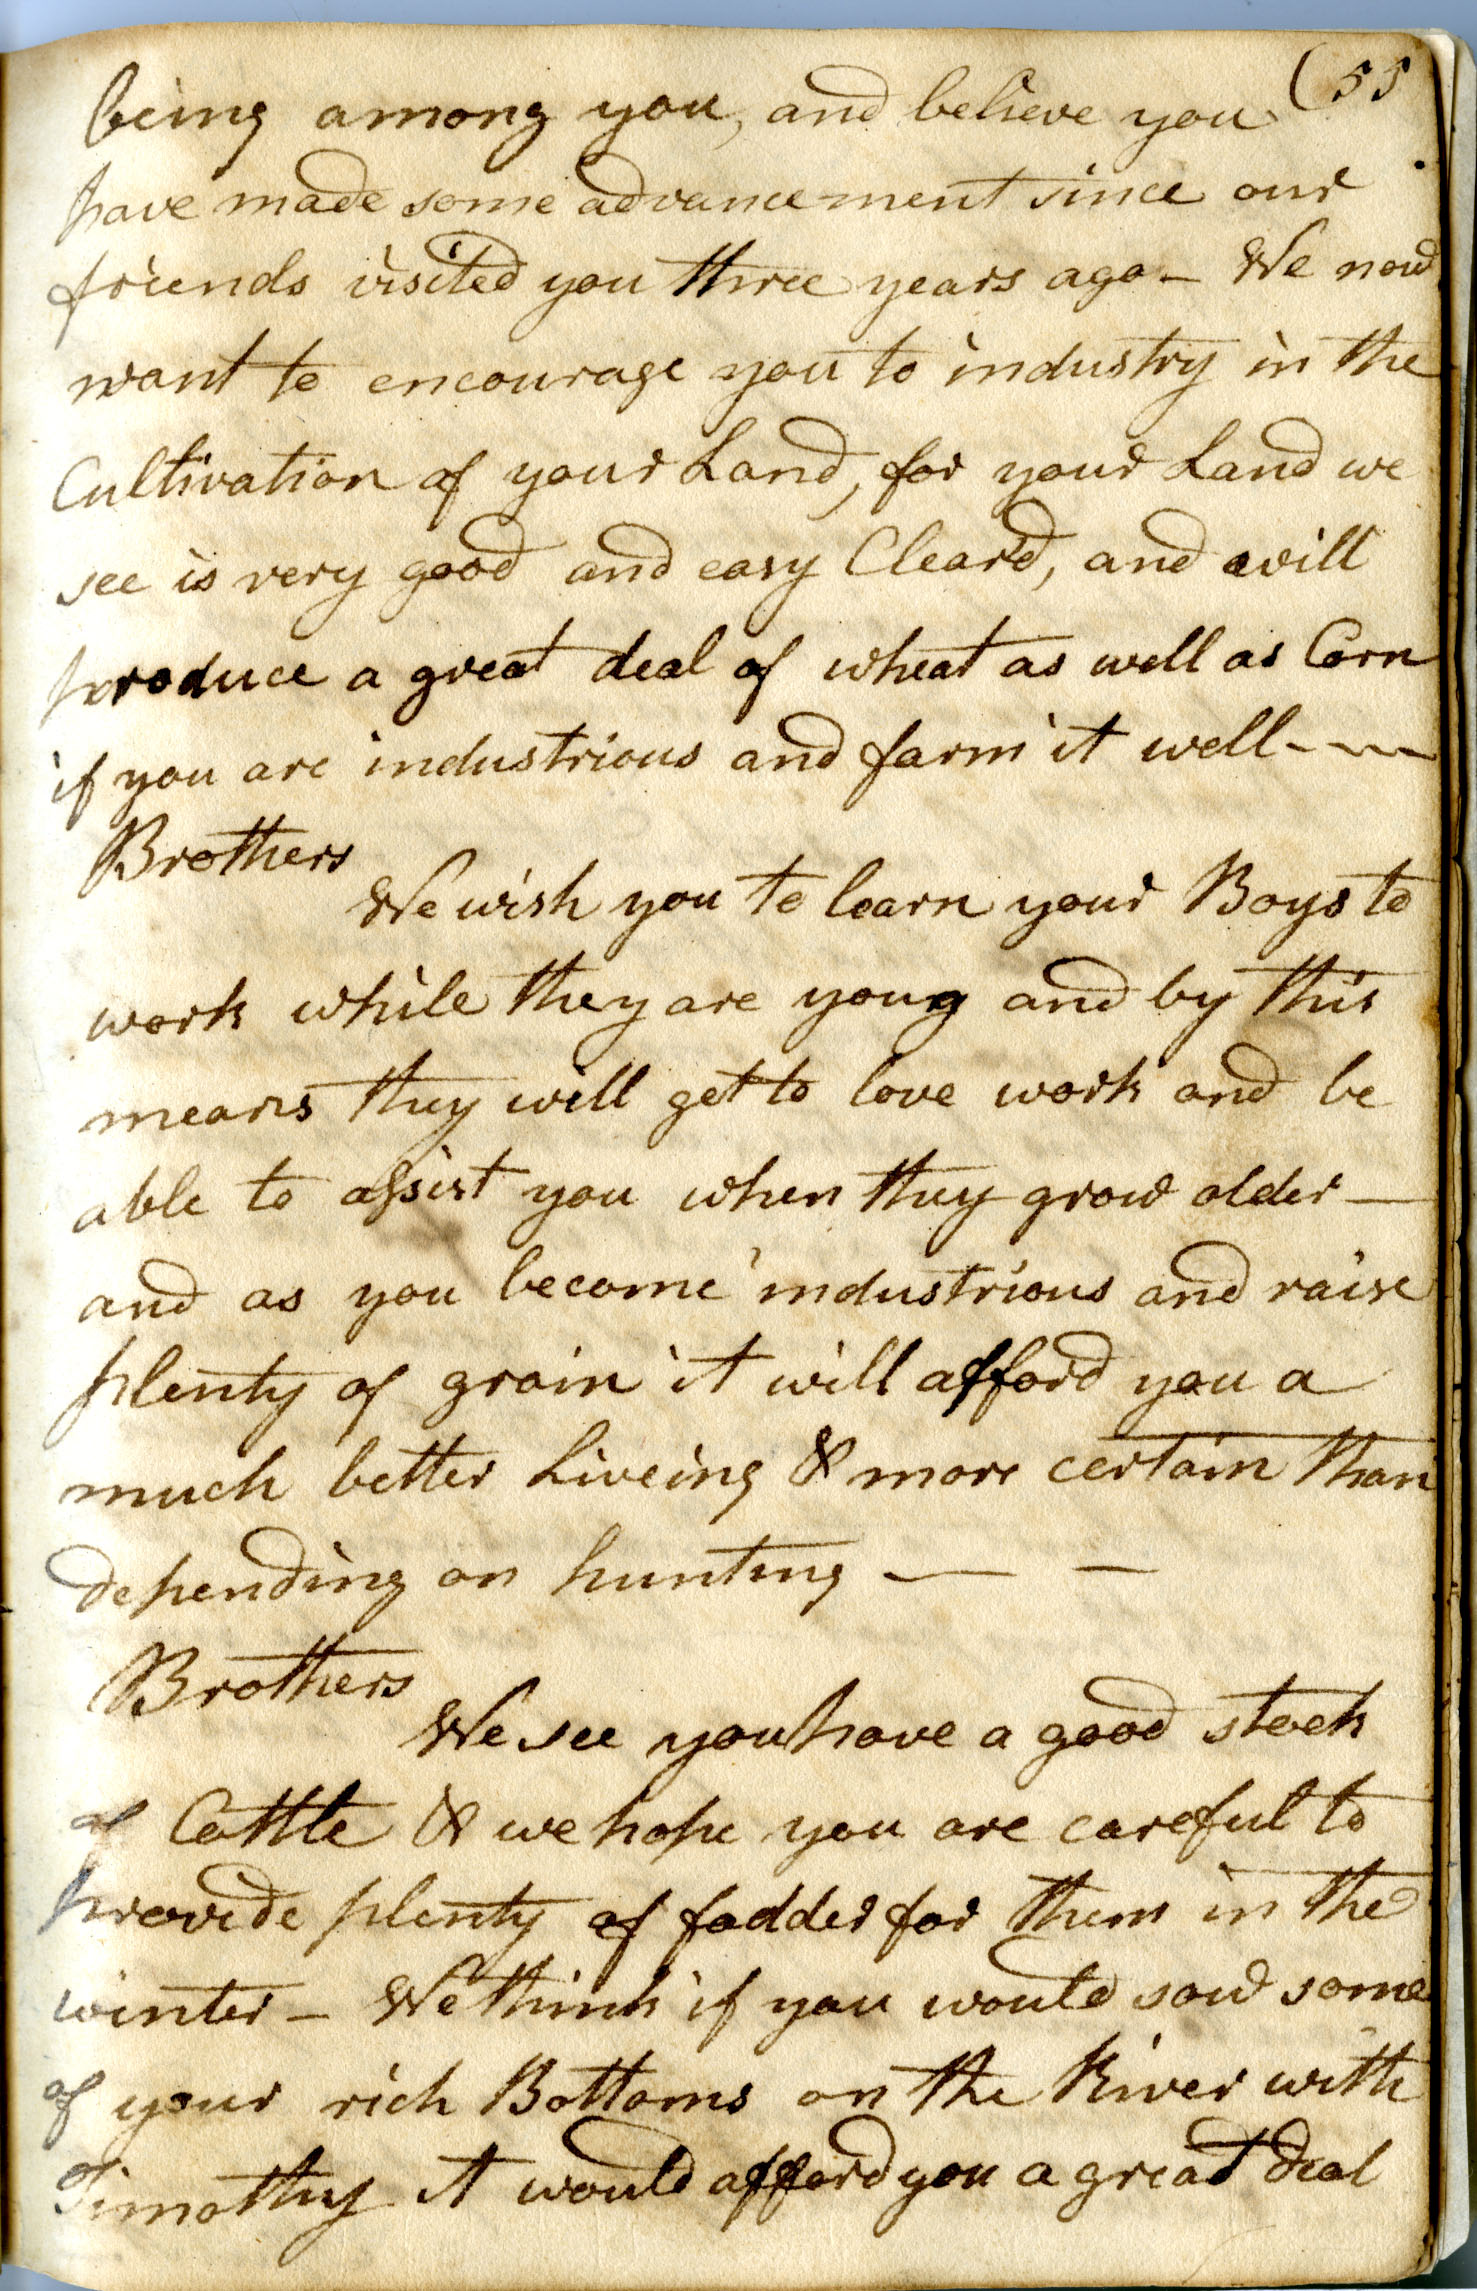 (55
being among you, and believe you
have made some advancement since our
friends visited you three years ago – We now
want to encourage you to industry in the
Cultivation of your Land, for your Land we
see is very good and easy Clear'd, and will
produce a great deal of wheat as well as Corn
if you are industrious and farm it well – ~
Brothers
We wish you to learn your Boys to
work while they are youg and by this
means they will get to love work and be
able to assist you when they grow older —
and as you become industrious and raise
plenty of grain it will afford you a
much better Liveing & more certain than
depending on hunting — —
Brothers
We see you have a good stock
of Cattle & we hope you are careful to
provide plenty of fodder for them in the
winter – We think if you would sow some
of your rich Bottoms on the River with
Timothy it would afford you a great deal